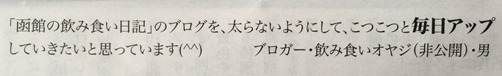 「函館の飲み食い日記」のブログを、太らないようにして、こつこつと毎日アップ
していきたいと思っています(^^)　　ブロガー・飲み食いオヤジ(非公開)・男